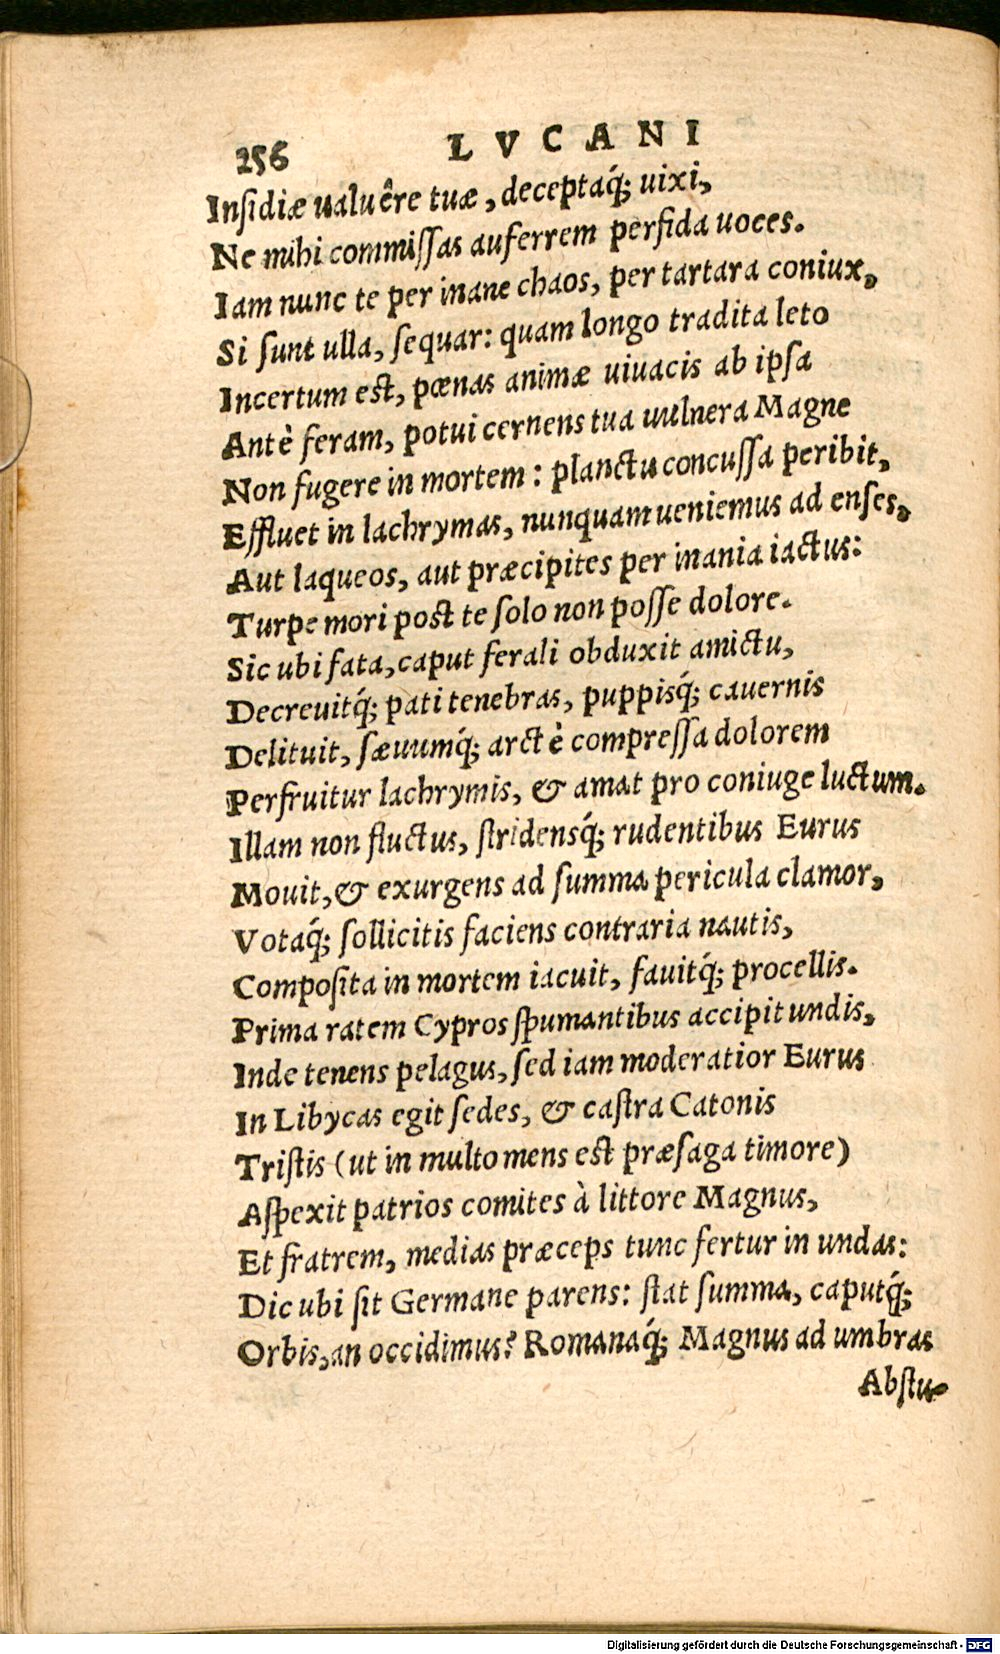 256 LVCANI
Insidiæ ualuêre tuæ, deceptaq́; uixi,
Ne mihi commissas auferrem perfida uoces.
Iam nunc te per inane chaos, per tartara coniux,
Si sunt ulla, sequar: quam longo tradita leto
Incertum est, pœnas animæ uiuacis ab ipsa
Antè feram, potui cernens tua uulnera Magne
Non fugere in mortem: planctu concussa peribit,
Effluet in lachrymas, nunquam ueniemus ad enses,
Aut laqueos, aut præcipites per inania iactus:
Turpe mori post te solo non posse dolore.
Sic ubi fata, caput ferali obduxit amictu,
Decreuitq́; pati tenebras, puppisq́; cauernis
Delituit, sæuumq́; arctè compressa dolorem
Perfruitur lachrymis, & amat pro coniuge luctum.
Illam non fluctus, stridensq́; rudentibus Eurus
Mouit, & exurgens ad summa pericula clamor,
Votaq́; sollicitis faciens contraria nautis,
Composita in mortem iacuit, fauitq́; procellis.
Prima ratem Cypros spumantibus accipit undis,
Inde tenens pelagus, sed iam moderatior Eurus
In Libycas egit sedes, & castra Catonis
Tristis (ut in multo mens est præsaga timore)
Aspexit patrios comites à littore Magnus,
Et fratrem, medias præceps tunc fertur in undas:
Dic ubi sit Germane parens: stat summa, caputq́;
Orbis, an occidimus? Romanaq́; Magnus ad umbras
Abstu-
Digitalisierung gefördert durch die Deutsche Forschungsgemeinschaft - DFG